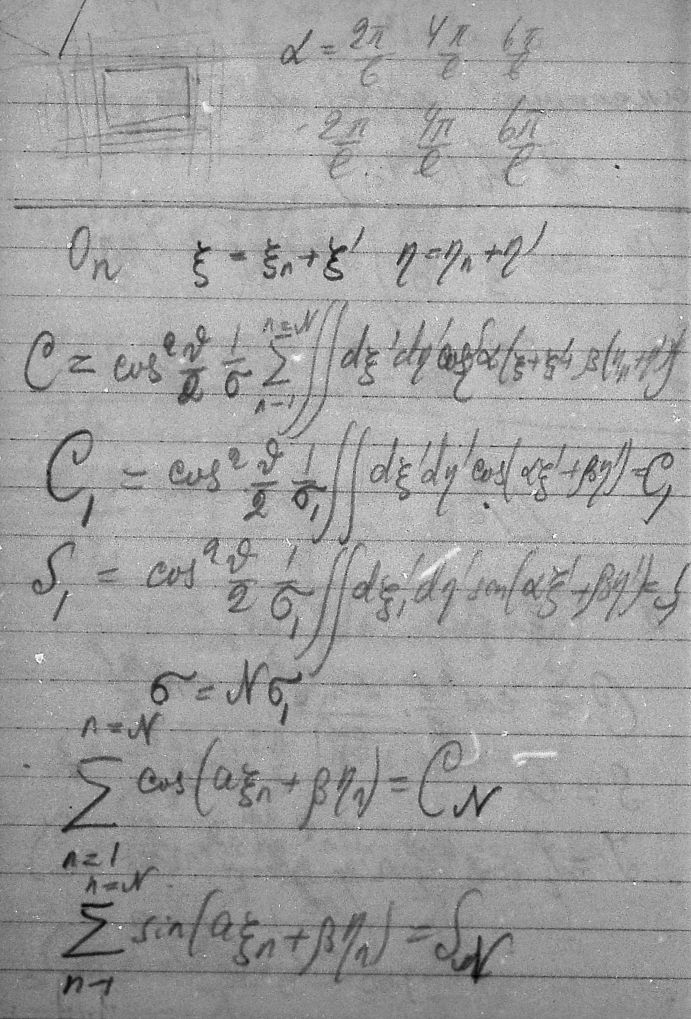 α = 2π/ℓ 4π/ℓ 6π/ℓ
- 2π/ℓ 4π/ℓ 6π/ℓ
O_n ξ = ξ_n + ξ' η = η_n + η'
C = cos² ϑ/2 1/σ ∑_{n=1}^{n=N} ∬ dξ'dη' cos[α(ξ+ξ')+β(η_n+η')]
C_1 = cos² ϑ/2 1/σ_1 ∬ dξ'dη' cos(αξ'+βη') = C_1
S_1 = cos² ϑ/2 1/σ_1 ∬ dξ'dη' sin(αξ'+βη') = S_1
σ = Nσ_1
∑_{n=1}^{n=N} cos(αξ_n + βη_n) = C_N
∑_{n=1}^{n=N} sin(αξ_n + βη_n) = S_N